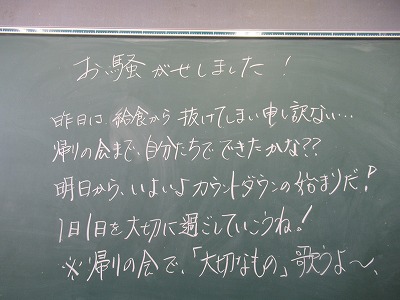 お騒がせしました!
昨日は給食から抜けてしまい申し訳ない…
帰りの会まで、自分たちでできたかな??
明日から、いよいよカウントダウンの始まりだ!
1日1日を大切に過ごしていこうね!
※帰りの会で、「大切なもの」歌うよ〜、